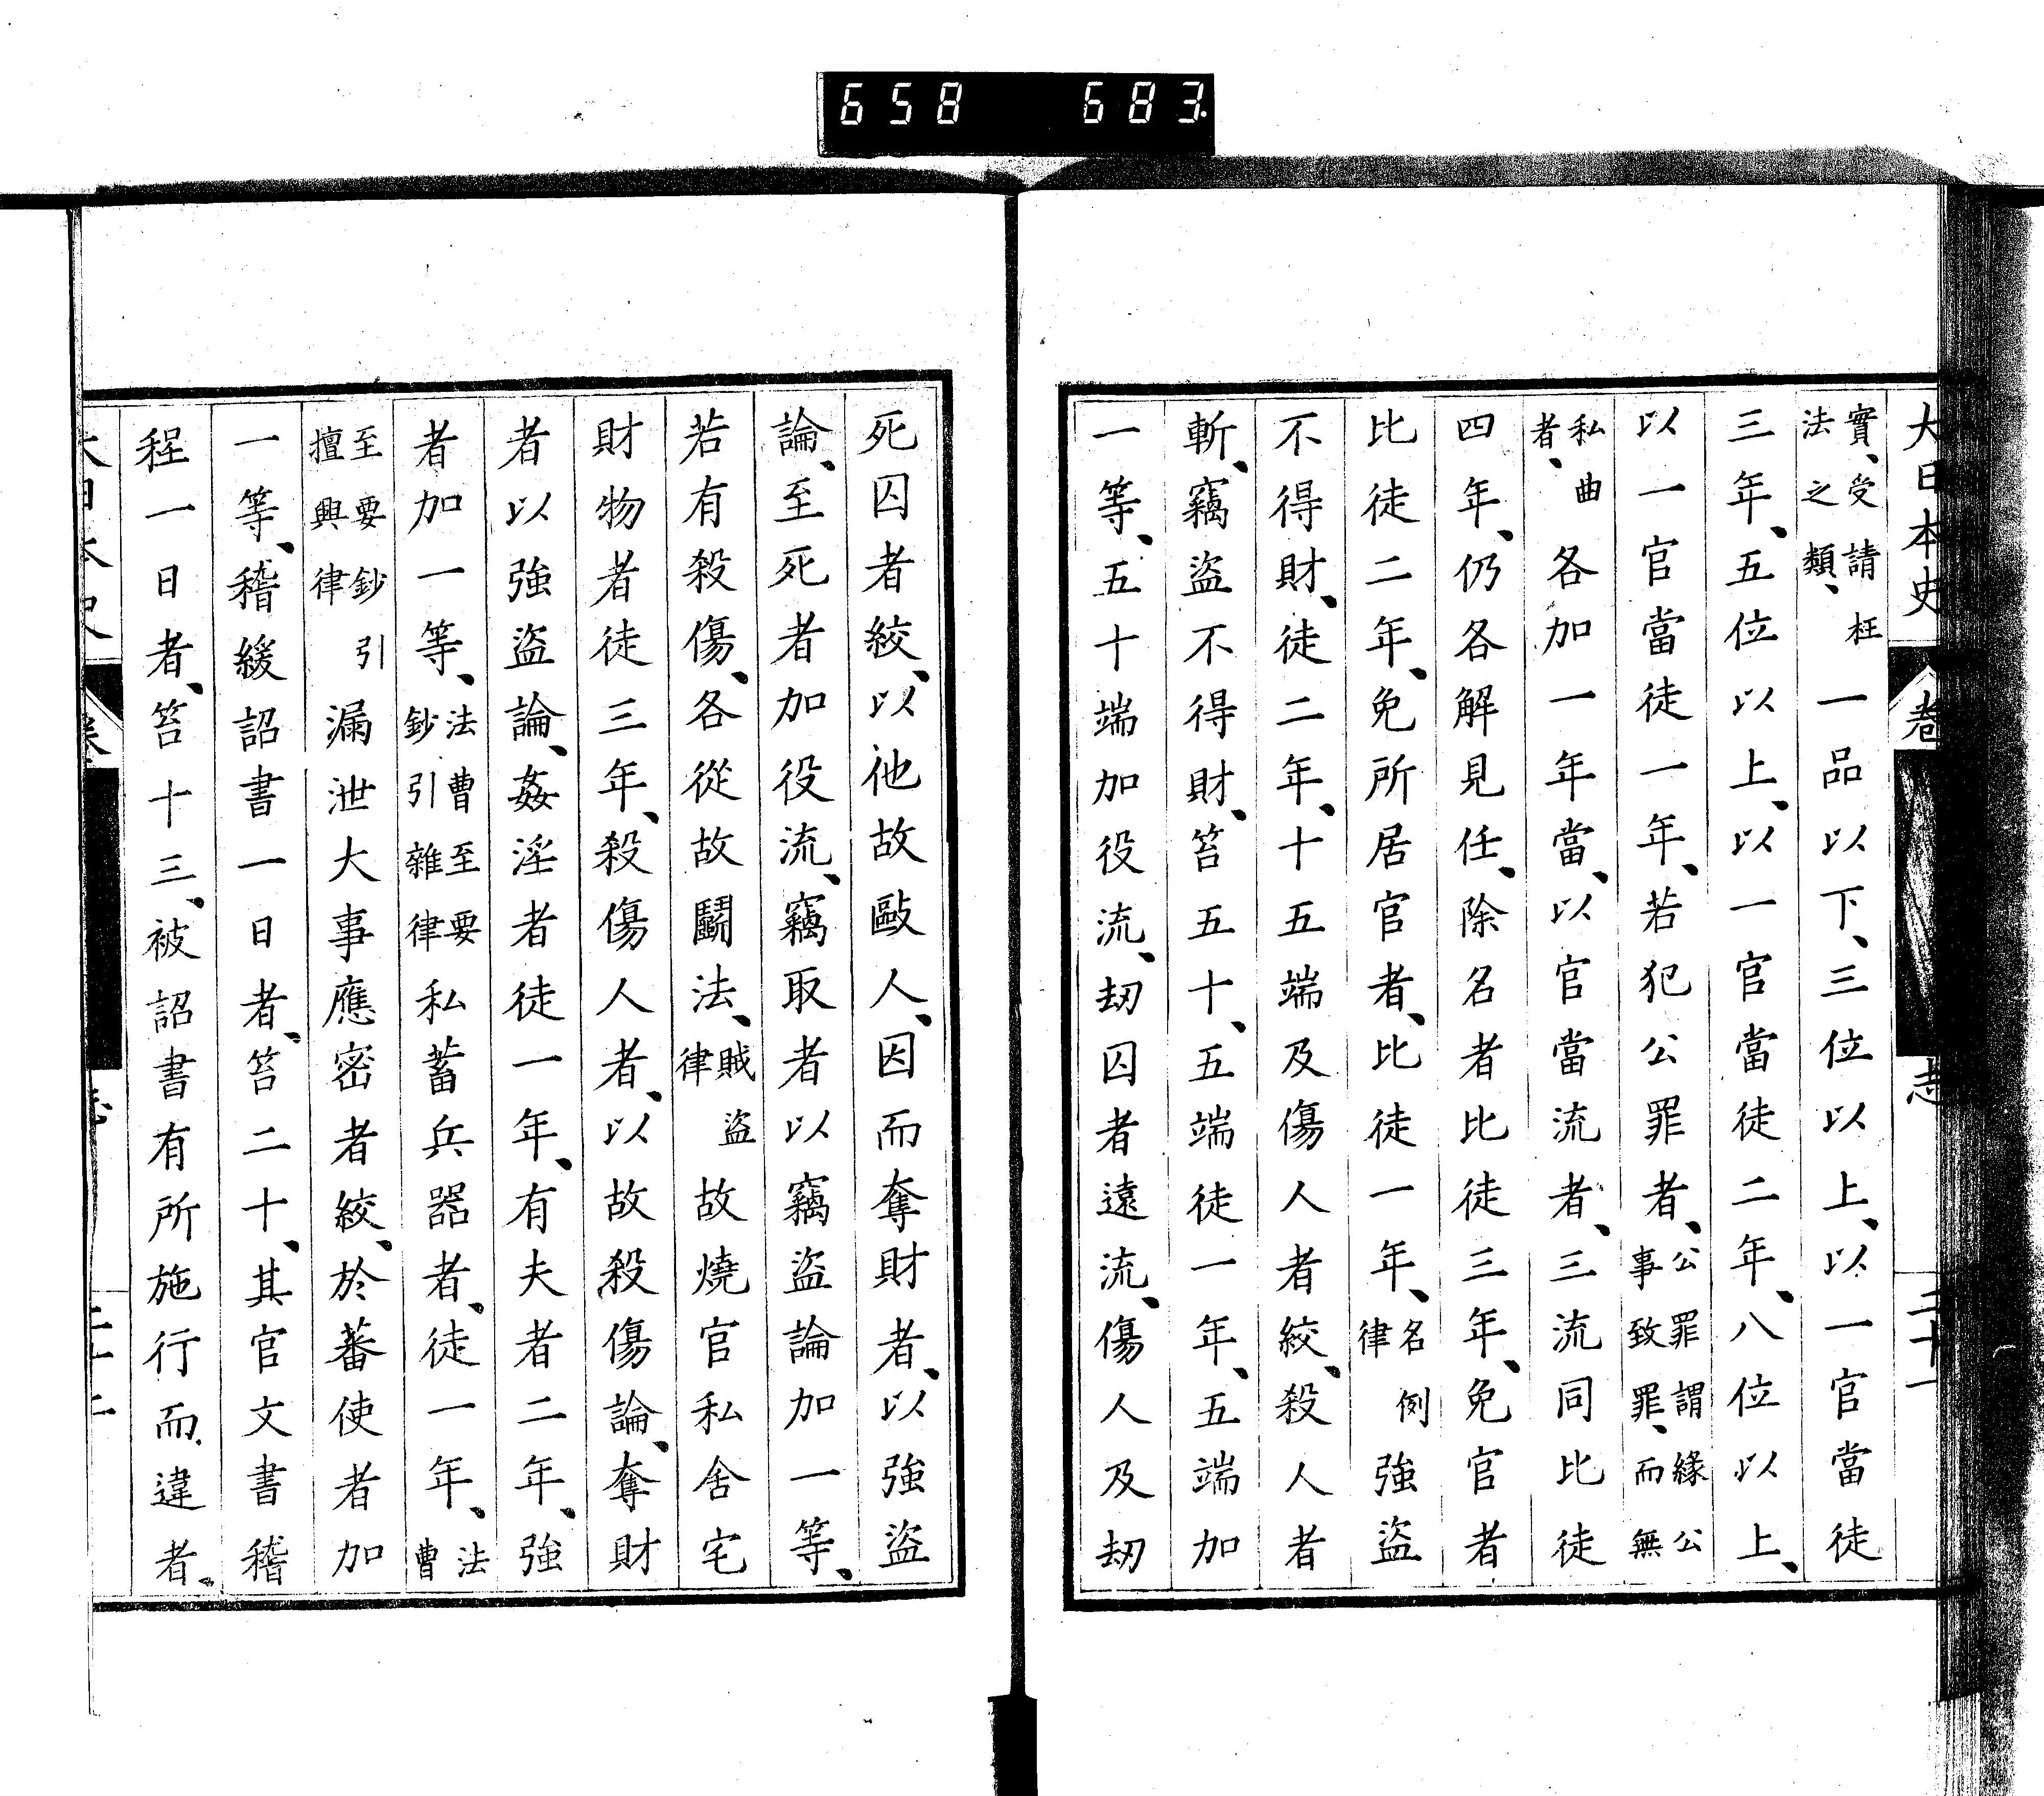 658 683
大日本史 卷 志 二十一
實、受請枉法之類、一品以下、三位以上、以一官當徒
三年、五位以上、以一官當徒二年、八位以上、
以一官當徒一年、若犯公罪者、公罪謂緣公事致罪、而無
私曲者、各加一年當、以官當流者、三流同比徒
四年、仍各解見任、除名者比徒三年、免官者
比徒二年、免所居官者、比徒一年、名例律強盜
不得財、徒二年、十五端及傷人者絞、殺人者
斬、竊盜不得財、笞五十、五端徒一年、五端加
一等、五十端加役流、劫囚者遠流、傷人及劫
死囚者絞、以他故毆人、因而奪財者、以強盜
論、至死者加役流、竊取者以竊盜論加一等、
若有殺傷、各從故鬭法、賊盜律故燒官私舍宅
財物者徒三年、殺傷人者、以故殺傷論、奪財
者以強盜論、姦淫者徒一年、有夫者二年、強
者加一等、法曹至要鈔引雜律私蓄兵器者、徒一年、法曹
至要鈔引擅興律漏泄大事應密者絞、於蕃使者加
一等、稽緩詔書一日者、笞二十、其官文書稽
程一日者、笞十三、被詔書有所施行而違者、